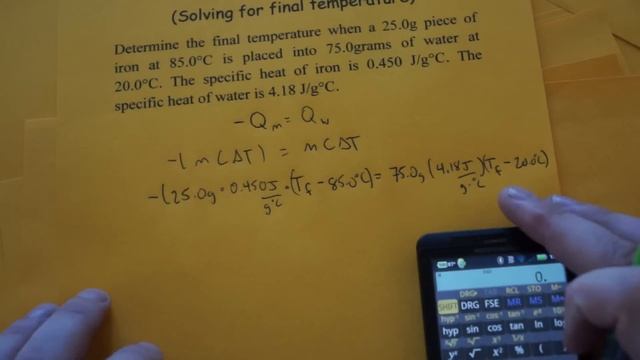 (Solving for final temperature)
Determine the final temperature when a 25.0g piece of
iron at 85.0°C is placed into 75.0grams of water at
20.0°C. The specific heat of iron is 0.450 J/g°C. The
specific heat of water is 4.18 J/g°C.
-Qm = Qw
-(mCΔT) = mCΔT
-(25.0g · 0.450J/g·°C · (Tf - 85.0°C) = 75.0g (4.18J/g·°C)(Tf - 20.0°C)
0.
DRG▸ RCL STO M-
SHIFT DRG FSE MR MS M+
hyp⁻¹ sin⁻¹ cos⁻¹ tan⁻¹ eˣ
hyp sin cos tan ln
√ x² % (